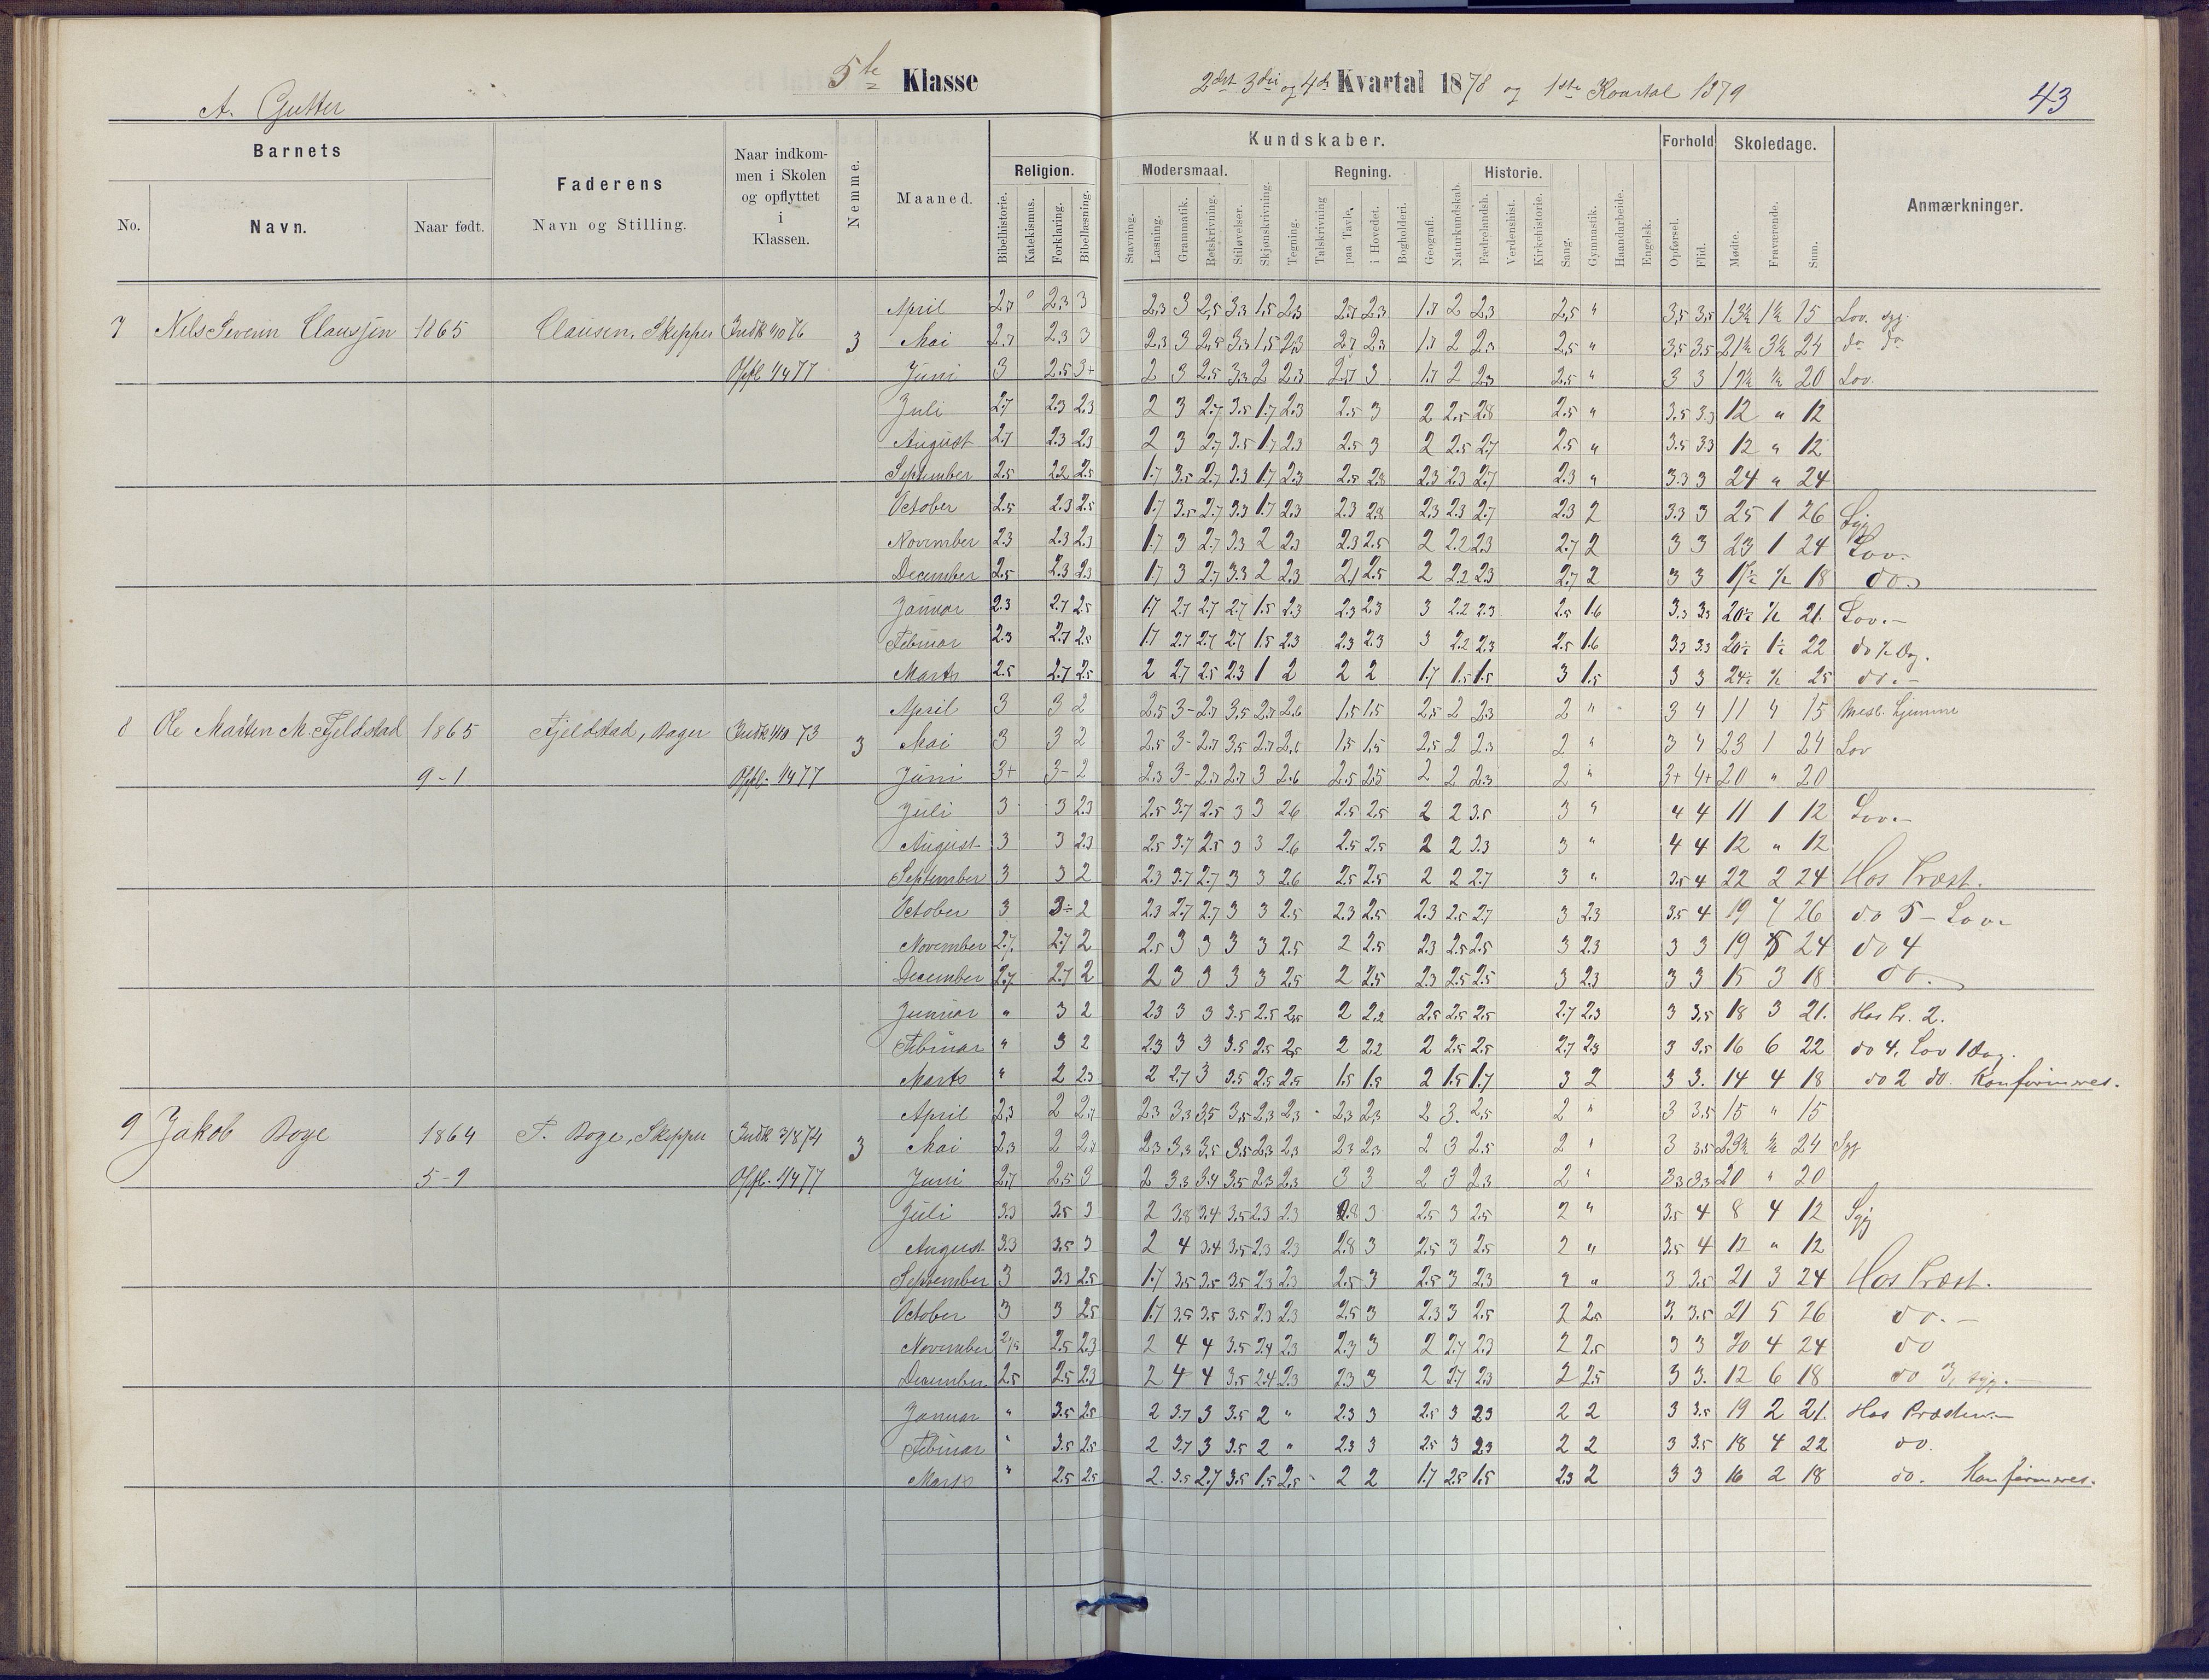 5te Klasse
2det 3die og 4de Kvartal 1878 og 1ste Kvartal 1879
43
A. Gutter
Barnets
No.
Navn.
Naar født.
Faderens
Navn og Stilling.
Naar indkom-
men i Skolen
og opflyttet
i
Klassen.
Nemme.
Maaned.
Kundskaber.
Religion.
Bibelhistorie.
Katekismus.
Forklaring.
Bibellæsning.
Modersmaal.
Stavning.
Læsning.
Grammatik.
Retskrivning.
Stiløvelser.
Skjønskrivning.
Tegning.
Regning.
Talskrivning
paa Tavle.
i Hovedet.
Bogholderi.
Geografi.
Naturkundskab.
Historie.
Fædrelandsh.
Verdenshist.
Kirkehistorie.
Sang.
Gymnastik.
Haandarbeide.
Engelsk.
Forhold
Opførsel.
Flid.
Skoledage.
Mødte.
Fraværende.
Sum.
Anmærkninger.
7 Nels Severin Claussen 1865 Clausen, Skipper 3
April 2,7 " 2,3 3 2,3 3 2,5 3,3 1,5 2,3 2,7 2,3 1,7 2 2,3 2,5 " 3,5 3,5 13½ 1½ 15 Lov. syg.
Mai 2,7 2,3 3 2,3 3 2,5 3,3 1,5 2,3 2,7 2,3 1,7 2 2,3 2,5 " 3,5 3,5 21½ 3½ 24 do do
Opfl. 1/4 77 Juni 3 2,5 3+ 2 3 2,5 3,3 2 2,3 2,7 3 1,7 2 2,3 2,5 " 3 3 19½ ½ 20 Lov.
Juli 2.7 2.3 2.3 2 3 2.7 3.5 1.7 2.3 2.5 3 2 2.5 2.8 2.5 " 3.5 3.3 12 " 12
August 2.7 2.3 2.3 2 3 2.7 3.5 1.7 2.3 2.5 3 2 2.5 2.7 2.5 " 3.5 3.3 12 " 12
September 2.5 2.2 2.5 1.7 3.5 2.7 3.3 1.7 2.3 2.5 2.8 2.3 2.3 2.7 2.3 " 3.3 3 24 " 24
October 2.5 2.3 2.5 1.7 3.5 2.7 3.3 1.7 2.3 2.3 2.8 2.3 2.3 2.7 2.3 2 3.3 3 25 1 26 Syg
November 2.3 2.3 2.3 1.7 3 2.7 3.3 2 2.3 2.3 2.5 2 2.2 2.3 2.7 2 3 3 23 1 24 Lov.
December 2.5 2.3 2.3 1.7 3 2.7 3.3 2 2.3 2.1 2.5 2 2.2 2.3 2.7 2 3 3 17½ ½ 18 do.
Januar 2.3 2.7 2.5 1.7 2.7 2.7 2.7 1.5 2.3 2.3 2.3 3 2.2 2.3 2.5 1.6 3.3 3.3 20½ ½ 21. Lov.-
Februar 2.3 2.7 2.5 1.7 2.7 2.7 2.7 1.5 2.3 2.3 2.3 3 2.2 2.3 2.5 1.6 3.3 3.3 20½ 1½ 22 do ½ Dag.
Marts 2.5 2.7 2.5 2 2.7 2.5 2.3 1 2 2 2 1.7 1.5 1.5 3 1.5 3 3 24½ ½ 25 do.-
8 Ole Marten M. Fjeldstad 1865 Fjeldstad, Bager 3
April 3 3 2 2,5 3- 2,7 3,5 2,7 2,6 1,5 1,5 2,5 2 2,3 2 " 3 4 11 4 15 hjemme
Mai 3 3 2 2,5 3- 2,7 3,5 2,7 2,6 1,5 1,5 2,5 2 2,3 2 " 3 4 23 1 24 Lov
9-1 Opfl. 1/4 77 Juni 3+ 3- 2 2,3 3- 2,7 2,7 3 2,6 2,5 2,5 2 2 2,3 2 " 3+ 4+ 20 " 20
Juli 3 3 2.3 2.5 3.7 2.5 3 3 2.6 2.5 2.5 2 2 3.5 3 " 4 4 11 1 12 Lov.-
August 3 3 2.3 2.5 3.7 2.5 3 3 2.6 2.5 2.5 2 2 3.3 3 " 4 4 12 " 12
September 3 3 2 2.3 3.7 2.7 3 3 2.6 2.5 2.5 2 2 2.7 3 " 3.5 4 22 2 24 Hos Præst.
October 3 3÷ 2 2.3 2.7 2.7 3 3 2.5 2.3 2.5 2.3 2.5 2.7 3 2.3 3.5 4 19 7 26 do 5 - Lov.
November 2.7 2.7 2 2.5 3 3 3 3 2.5 2 2.5 2.3 2.5 2.5 3 2.3 3 3 19 5 24 do 4
December 2.7 2.7 2 2 3 3 3 3 2.5 2 2.5 2.3 2.5 2.5 3 2.3 3 3 15 3 18 do.
Januar " 3 2 2.3 3 3 3.5 2.5 2.5 2 2.2 2.5 2.5 2.5 2.7 2.3 3 3.5 18 3 21. Hos Pr. 2.
Februar " 3 2 2.3 3 3 3.5 2.5 2.5 2 2.2 2 2.5 2.5 2.7 2.3 3 3.5 16 6 22 do 4, Lov 1 Dag.
Marts " 2 2.3 2 2.7 3 3.5 2.5 2.5 1.5 1.5 2 1.5 1.7 3 2 3 3. 14 4 18 do 2 do. Konfirmeres.
9 Jakob Boye 1864 T. Boye, Skipper Indk 3/8 74 3
April 2,3 2 2,7 2,3 3,3 3,5 3,5 2,3 2,3 2,3 2,3 2 3. 2,5 2 " 3 3.5 15 " 15
Mai 2,3 2 2,7 2,3 3,3 3,5 3,5 2,3 2,3 2,3 2,3 2 3 2,5 2 " 3 3.5 23½ ½ 24 Syg
5-9 Opfl. 1/4 77 Juni 2,7 2,5 3 2 3,3 3,4 3,5 2,3 2,3 3 3 2 3 2,3 2 " 3,3 3,3 20 " 20
Juli 3.3 3.5 3 2 3.8 3.4 3.5 2.3 2.3 2.8 3 2.5 3 2.5 2 " 3.5 4 8 4 12 Syg
August 3.3 3.5 3 2 4 3.4 3.5 2.3 2.3 2.8 3 2.5 3 2.5 2 " 3.5 4 12 " 12
September 3 3.3 2.5 1.7 3.5 3.5 3.5 2.3 2.3 2.5 3 2.5 3 2.3 2 " 3 3.5 21 3 24 Hos Præst.
October 3 3 2.5 1.7 3.5 3.5 3.5 2.3 2.3 2.5 3 2.3 3 2.5 2 2.5 3. 3.5 21 5 26 do.-
November 2.5 2.5 2.3 2 4 4 3.5 2.4 2.3 2.3 3 2 2.7 2.3 2 2.5 3 3 20 4 24 do
December 2.5 2.5 2.3 2 4 4 3.5 2.4 2.3 2.3 3 2 2.7 2.3 2 2.5 3 3. 12 6 18 do 3, syg.
Januar " 3.5 2.5 2 3.7 3 3.5 2 " 2.3 3 2.5 3 2.3 2 2 3 3.5 19 2 21. Hos Præsten.-
Februar " 3.5 2.5 2 3.7 3 3.5 2 " 2.3 3 2.5 3 2.3 2 2 3 3.5 18 4 22 do.
Marts " 2.5 2.5 2. 3.5 2.7 3.5 1.5 2.5 2 2 1.7 2.5 1.5 2.3 2 3 3 16 2 18 do. Konfirmeres.